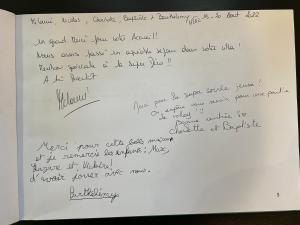 Mélanie, Nicolas, Charlotte, Baptiste & Barthélémy, 15-20 Août 2022
Un grand Merci pour votre Accueil!
Nous avons passé un agréable séjour dans votre villa!
Mention spéciale à la super Déco!!
A bientôt
Mélanie
Merci pour la super soirée jeux!
On espère vous revoir pour une partie
de volley
Bonne rentrée
Charlotte et Baptiste
Merci pour cette belle maison
et je remercie les enfants: Max,
Lazare et Victoire!
d'avoir jouer avec nous.
Barthélémy